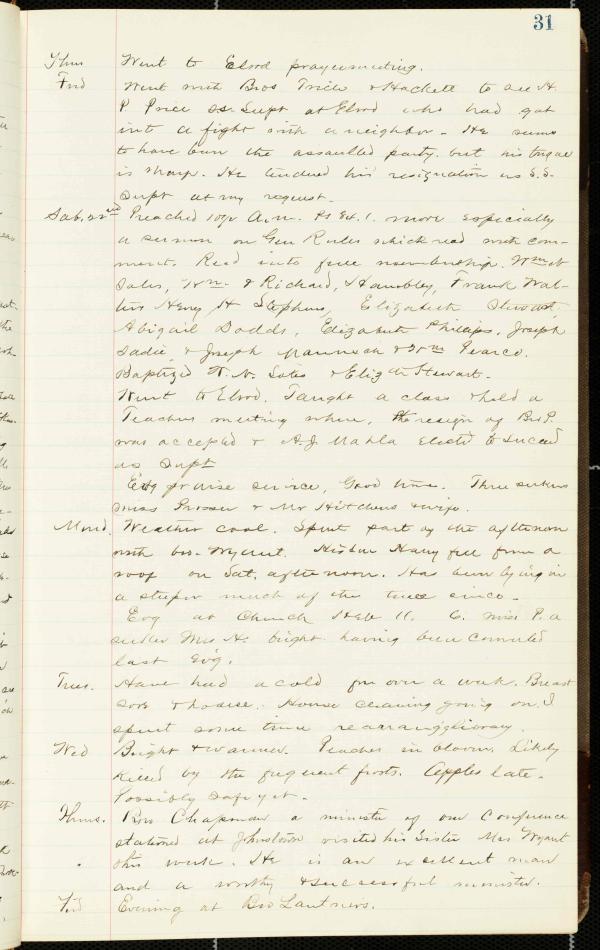 31
Thur Went to Elrod prayermeeting.
Frid Went with Bros Trice & Hackett to see H
P Price SS. Supt at Elrod who had got
into a fight with a neighbor - He seems
to have been the assaulted party. but his tongue
is sharp. He tendered his resignation as S.S.
Supt at my request.
Sab. 22nd Preached 10½ A.m. Ps 1. more especially
a sermon on Gen Rules which read with com-
ments. Read into full membership. Wm N
Sales, Wm. & Richard, Hambley, Frank Wal-
ters Henry H Stephens, Elizabeth Stewart,
Abigail Dodds, Elizabeth Philips, Joseph
Sadie, & Joseph & Wm Pearce.
Baptized W. N. Sales & Eliz th Stewart.
Went to Elrod. Taught a class & held a
Teachers meeting where, the resign of Bro P.
was accepted & A.J. Mahla elected to suceed
as Supt
Evg praise service, Good time. Three seekers
Miss & Mr Hitchens & wife.
Mond. Weather cool. Spent part of the afternoon
with bro. Wyant. His son Harry fell from a
roof on Sat. afternoon. Has been lying in
a stuper much of the time since -
Evg at Church 11. 6. Miss P. a
seeker Mrs H. bright having been converted
last Evg.
Tues. Have had a cold for over a week. Breast
sore & hoarse. House cleaning going on, I
spent some time rearranging library.
Wed Bright & warmer. Peaches in bloom. Likely
killed by the frequent frosts. Apples late.
Possibly safe yet.
Thurs. Rev Chapman a minister of our Conference
stationed at Johnstown visited his Sister Mrs Wyant
this week. He is an excellent man
and a worthy & successful minister.
Frid Evening at Bro Lantners.